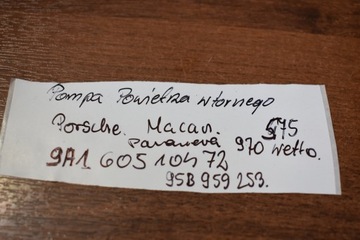 Pompa Powietrza wtornego
Porsche. Macan. 575
Panamera 970 netto.
9A1 605 104 72
95B 959 253.